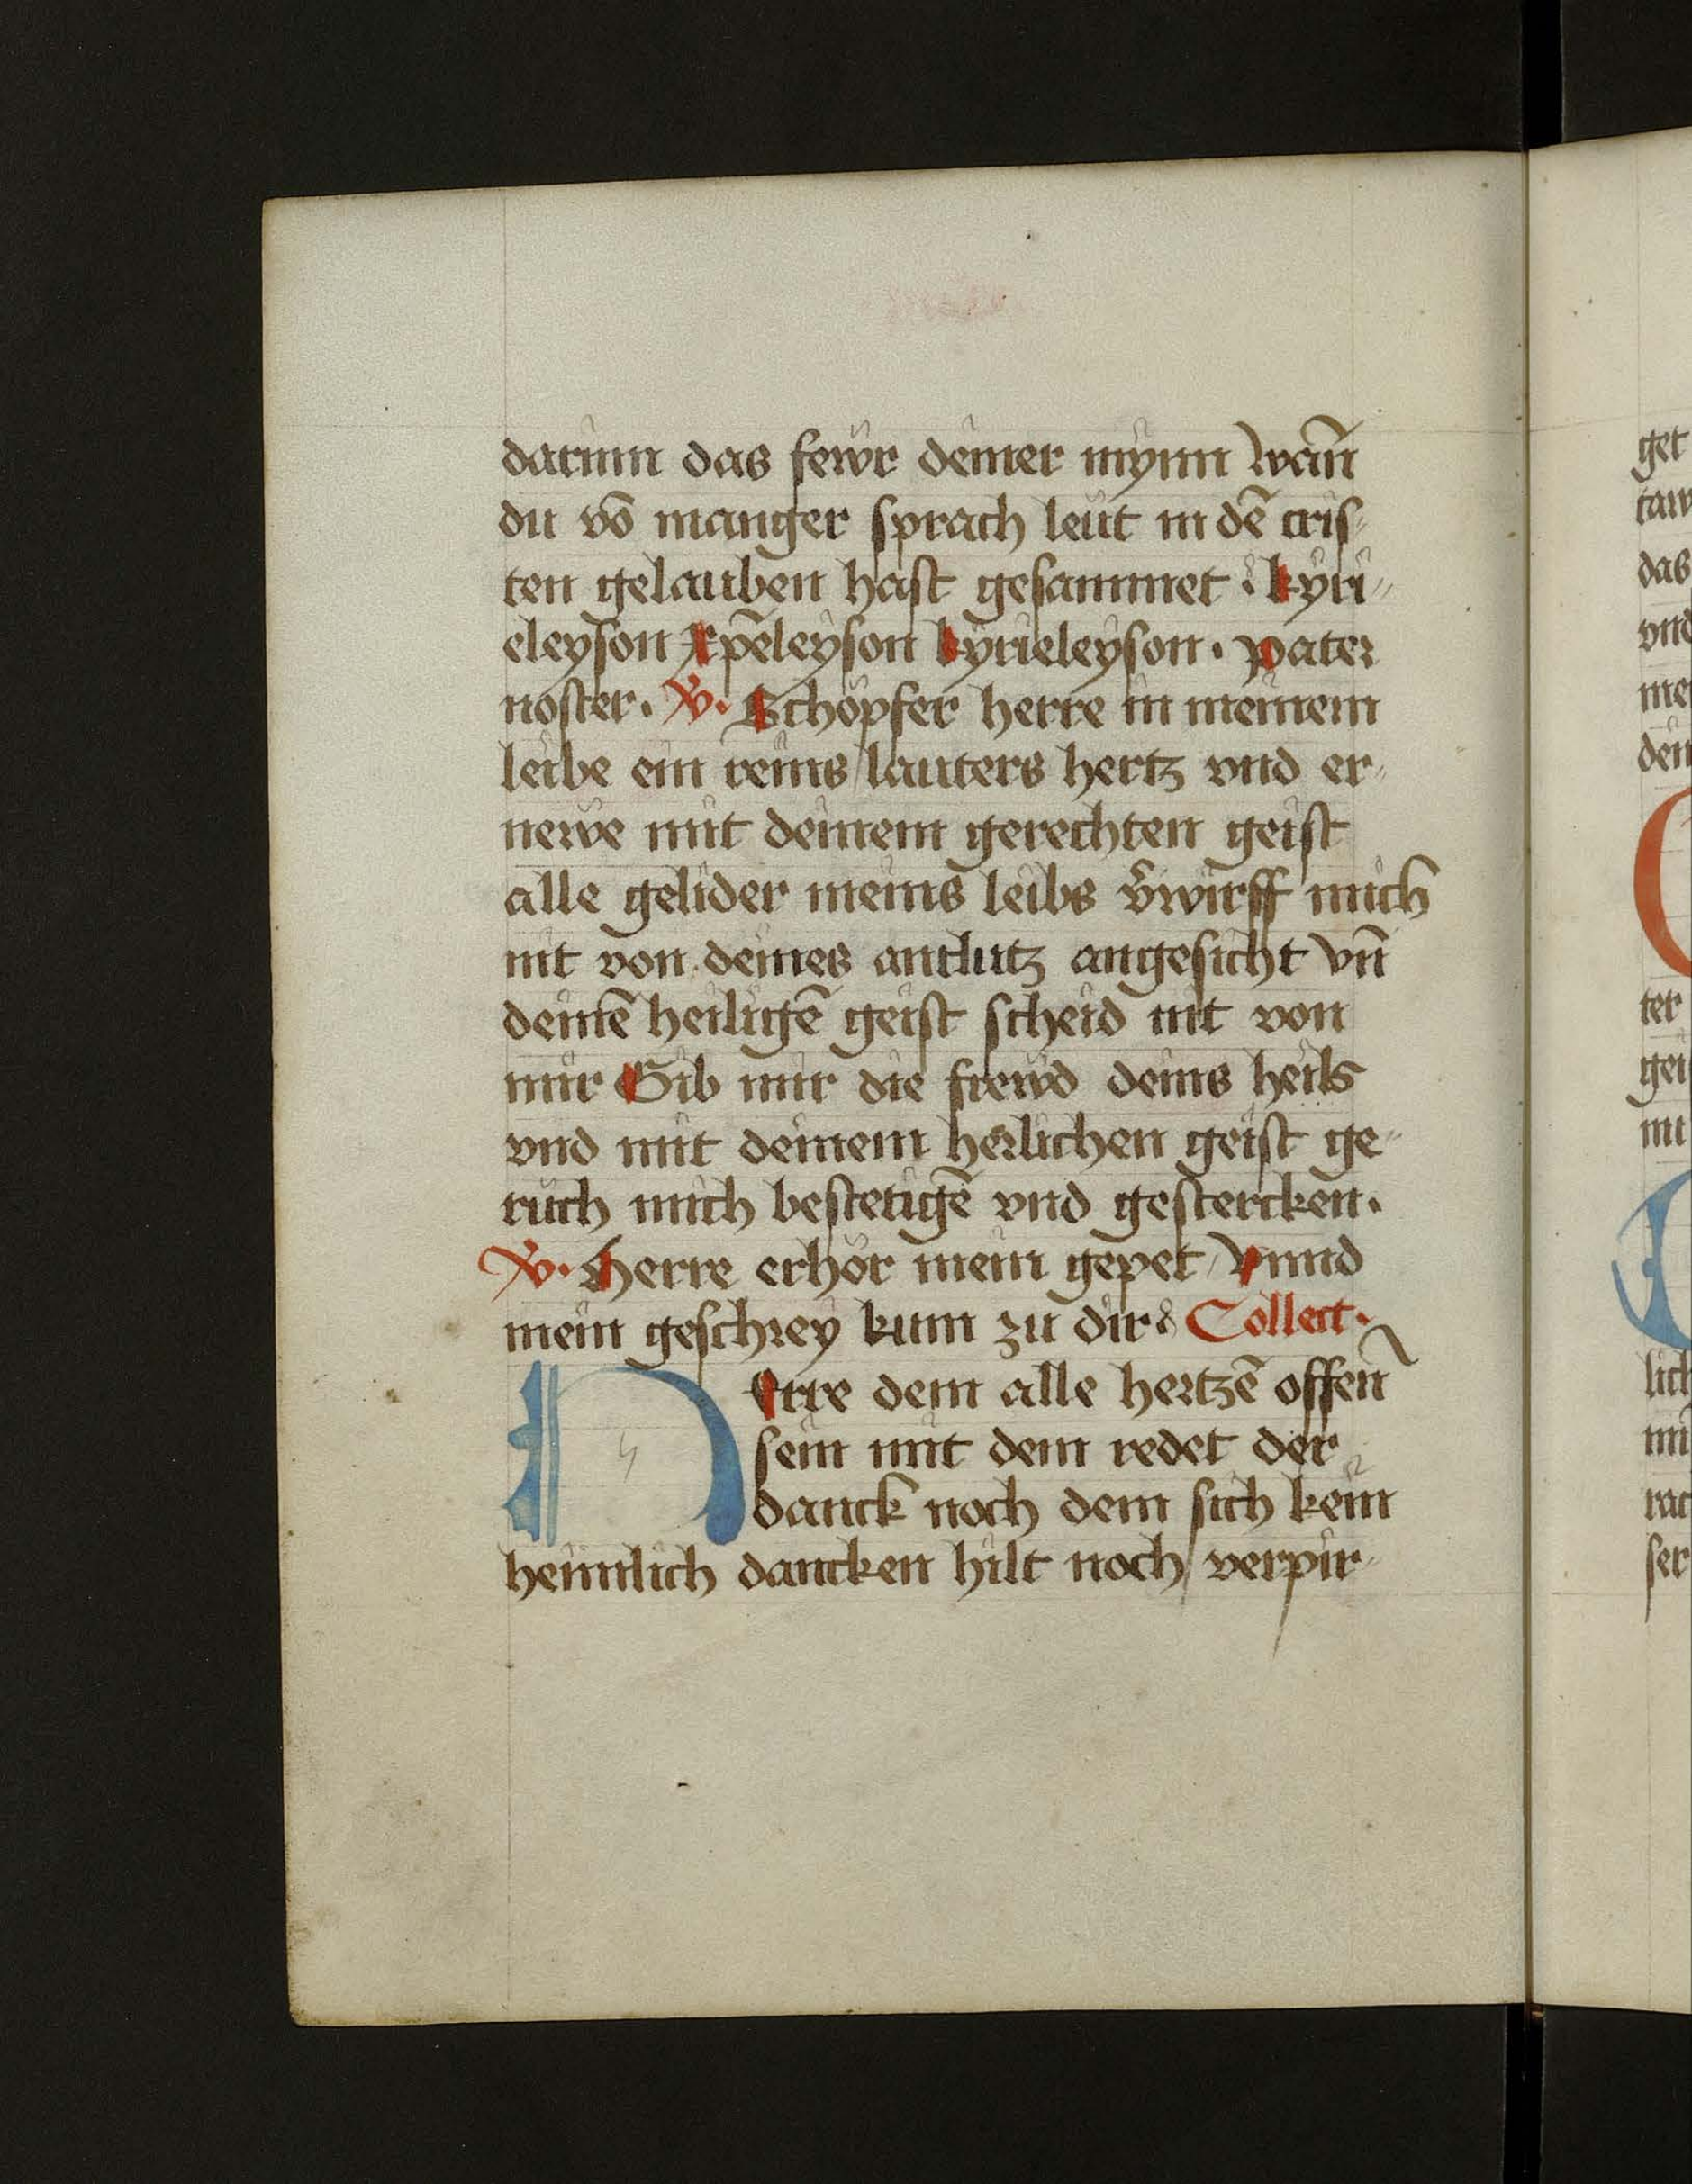 darinn das fewr deiner mynn wañ
du vō manger sprach leut in dē cris-
ten gelauben hast gesammet : kyri-
eleyson xp̄eleyson kyrieleyson . pater
noster. V. Schöpfer herre in meinem
leibe ein reins lauters hertz vnd er-
newe mit deinem gerechten geist
alle gelider meins leibs v̄wirff mich
nit von deines antlutz angesicht vñ
deinē heiligē geist scheid nit von
mir Gib mir die frewd deins heils
vnd mit deinem herlichen geist ge-
ruch mich bestetigē vnd gestercken.
V. Herre erhör mein gepet / Vnnd
mein geschrey kum zu dir : Collect.
Herre dem alle hertzē offen
sein mit dem redet der
danck noch dem sich kein
heimlich dancken hilt noch verpir-
get
das
vnd
ter
lich
ser